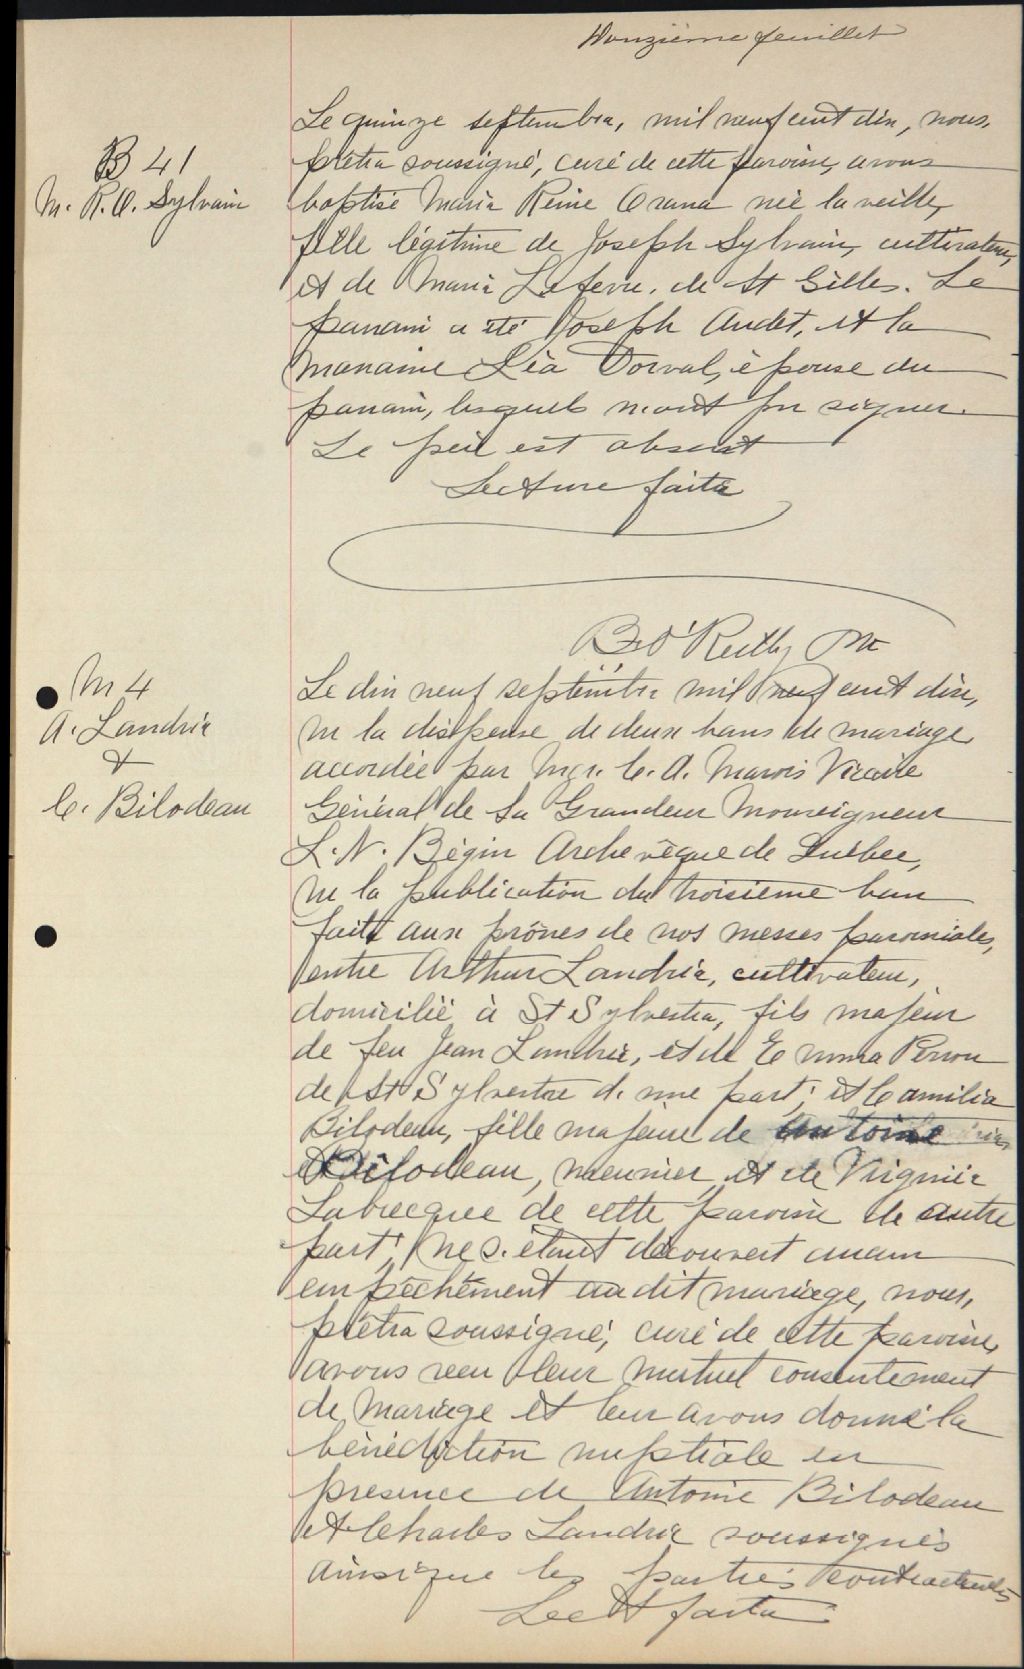 Donzième feuillet
B 41
M. R. O. Sylvain
Le quinze septembre, mil neuf cent dix, nous,
prêtre soussigné, curé de cette paroisse, avons
baptisé Maria Reine Orana née la veille,
fille légitime de Joseph Sylvain, cultivateur,
et de Marie Lefevre, de St Gilles. Le
parrain a été Joseph Audet, et la
marraine Léa Dorval, épouse du
parrain, lesquels n'ont pu signer.
Le père est absent
Lecture faite
B. O'Reilly Ptre
M 4
A. Landrie
&
C. Bilodeau
Le dix neuf septembre mil neuf cent dix,
vu la dispense de deux bans de mariage
accordée par Mgr. C. A. Marois Vicaire
Général de Sa Grandeur Monseigneur
L. N. Bégin Archevêque de Québec,
vu la publication du troisième ban
faite aux prônes de nos messes paroissiales,
entre Arthur Landrie, cultivateur,
domicilié à St Sylvestre, fils majeur
de feu Jean Landrie, et de Emma Perron
de St Sylvestre d'une part; et Camilia
Bilodeau, fille majeure de Antoine
Bilodeau, meunier, et de Virginie
Labrecque de cette paroisse de autre
part; ne s'étant découvert aucun
empêchement au dit mariage, nous,
prêtre soussigné, curé de cette paroisse,
avons reçu leur mutuel consentement
de mariage et leur avons donné la
bénédiction nuptiale en
présence de Antoine Bilodeau
et Charles Landrie soussignés
ainsi que les parties contractantes
Lect faite